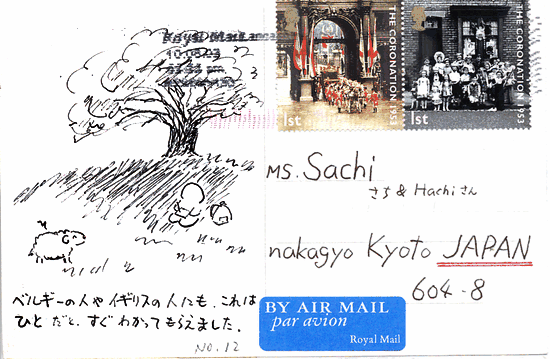 Royal Mail
THE CORONATION 1953
1st
THE CORONATION 1953
1st
Ms. Sachi
さち & Hachi さん
nakagyo Kyoto JAPAN
604-8
BY AIR MAIL
par avion
Royal Mail
ベルギーの人や イギリスの人にも、これは
ひと だと、すぐ わかって もらえました。
NO.12